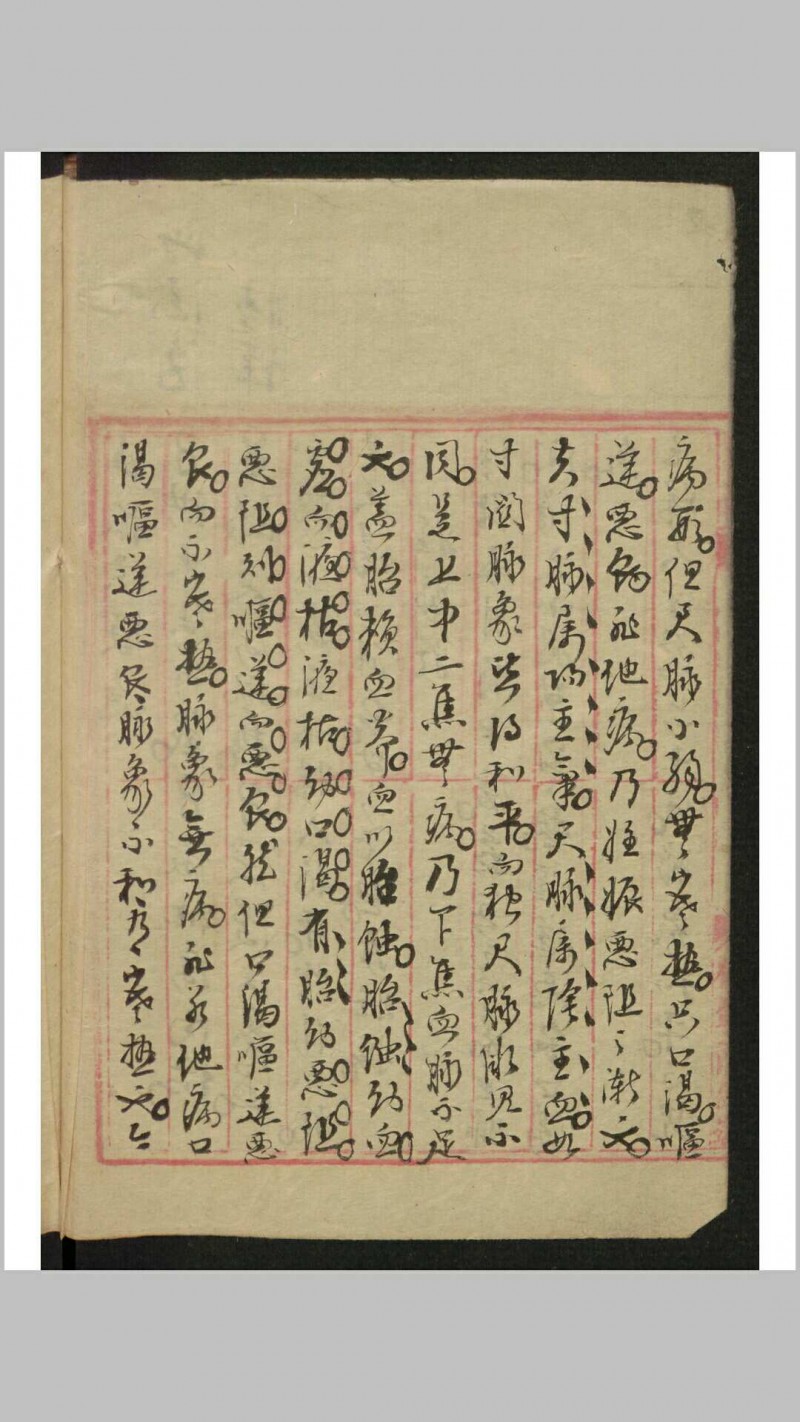 病形。但尺脈小弱。無寒熱。只口渴。嘔
逆。惡非他病。乃姙娠惡阻之漸也。
夫寸脈屬陽主氣。尺脈屬陰主血。如
寸關脈象皆得和平。而獨尺脈微見不
同。是上中二焦無病。乃下焦血脈不足
也。蓋胎賴血養。血以胎蝕。胎蝕則血
虛。而液枯。液枯則口渴。有胎則惡阻。
惡阻則嘔逆而惡食。然但口渴嘔逆惡
食。而不寒熱。脈象無病。非若他病口
渴嘔逆惡食脈象不和有寒熱也。今